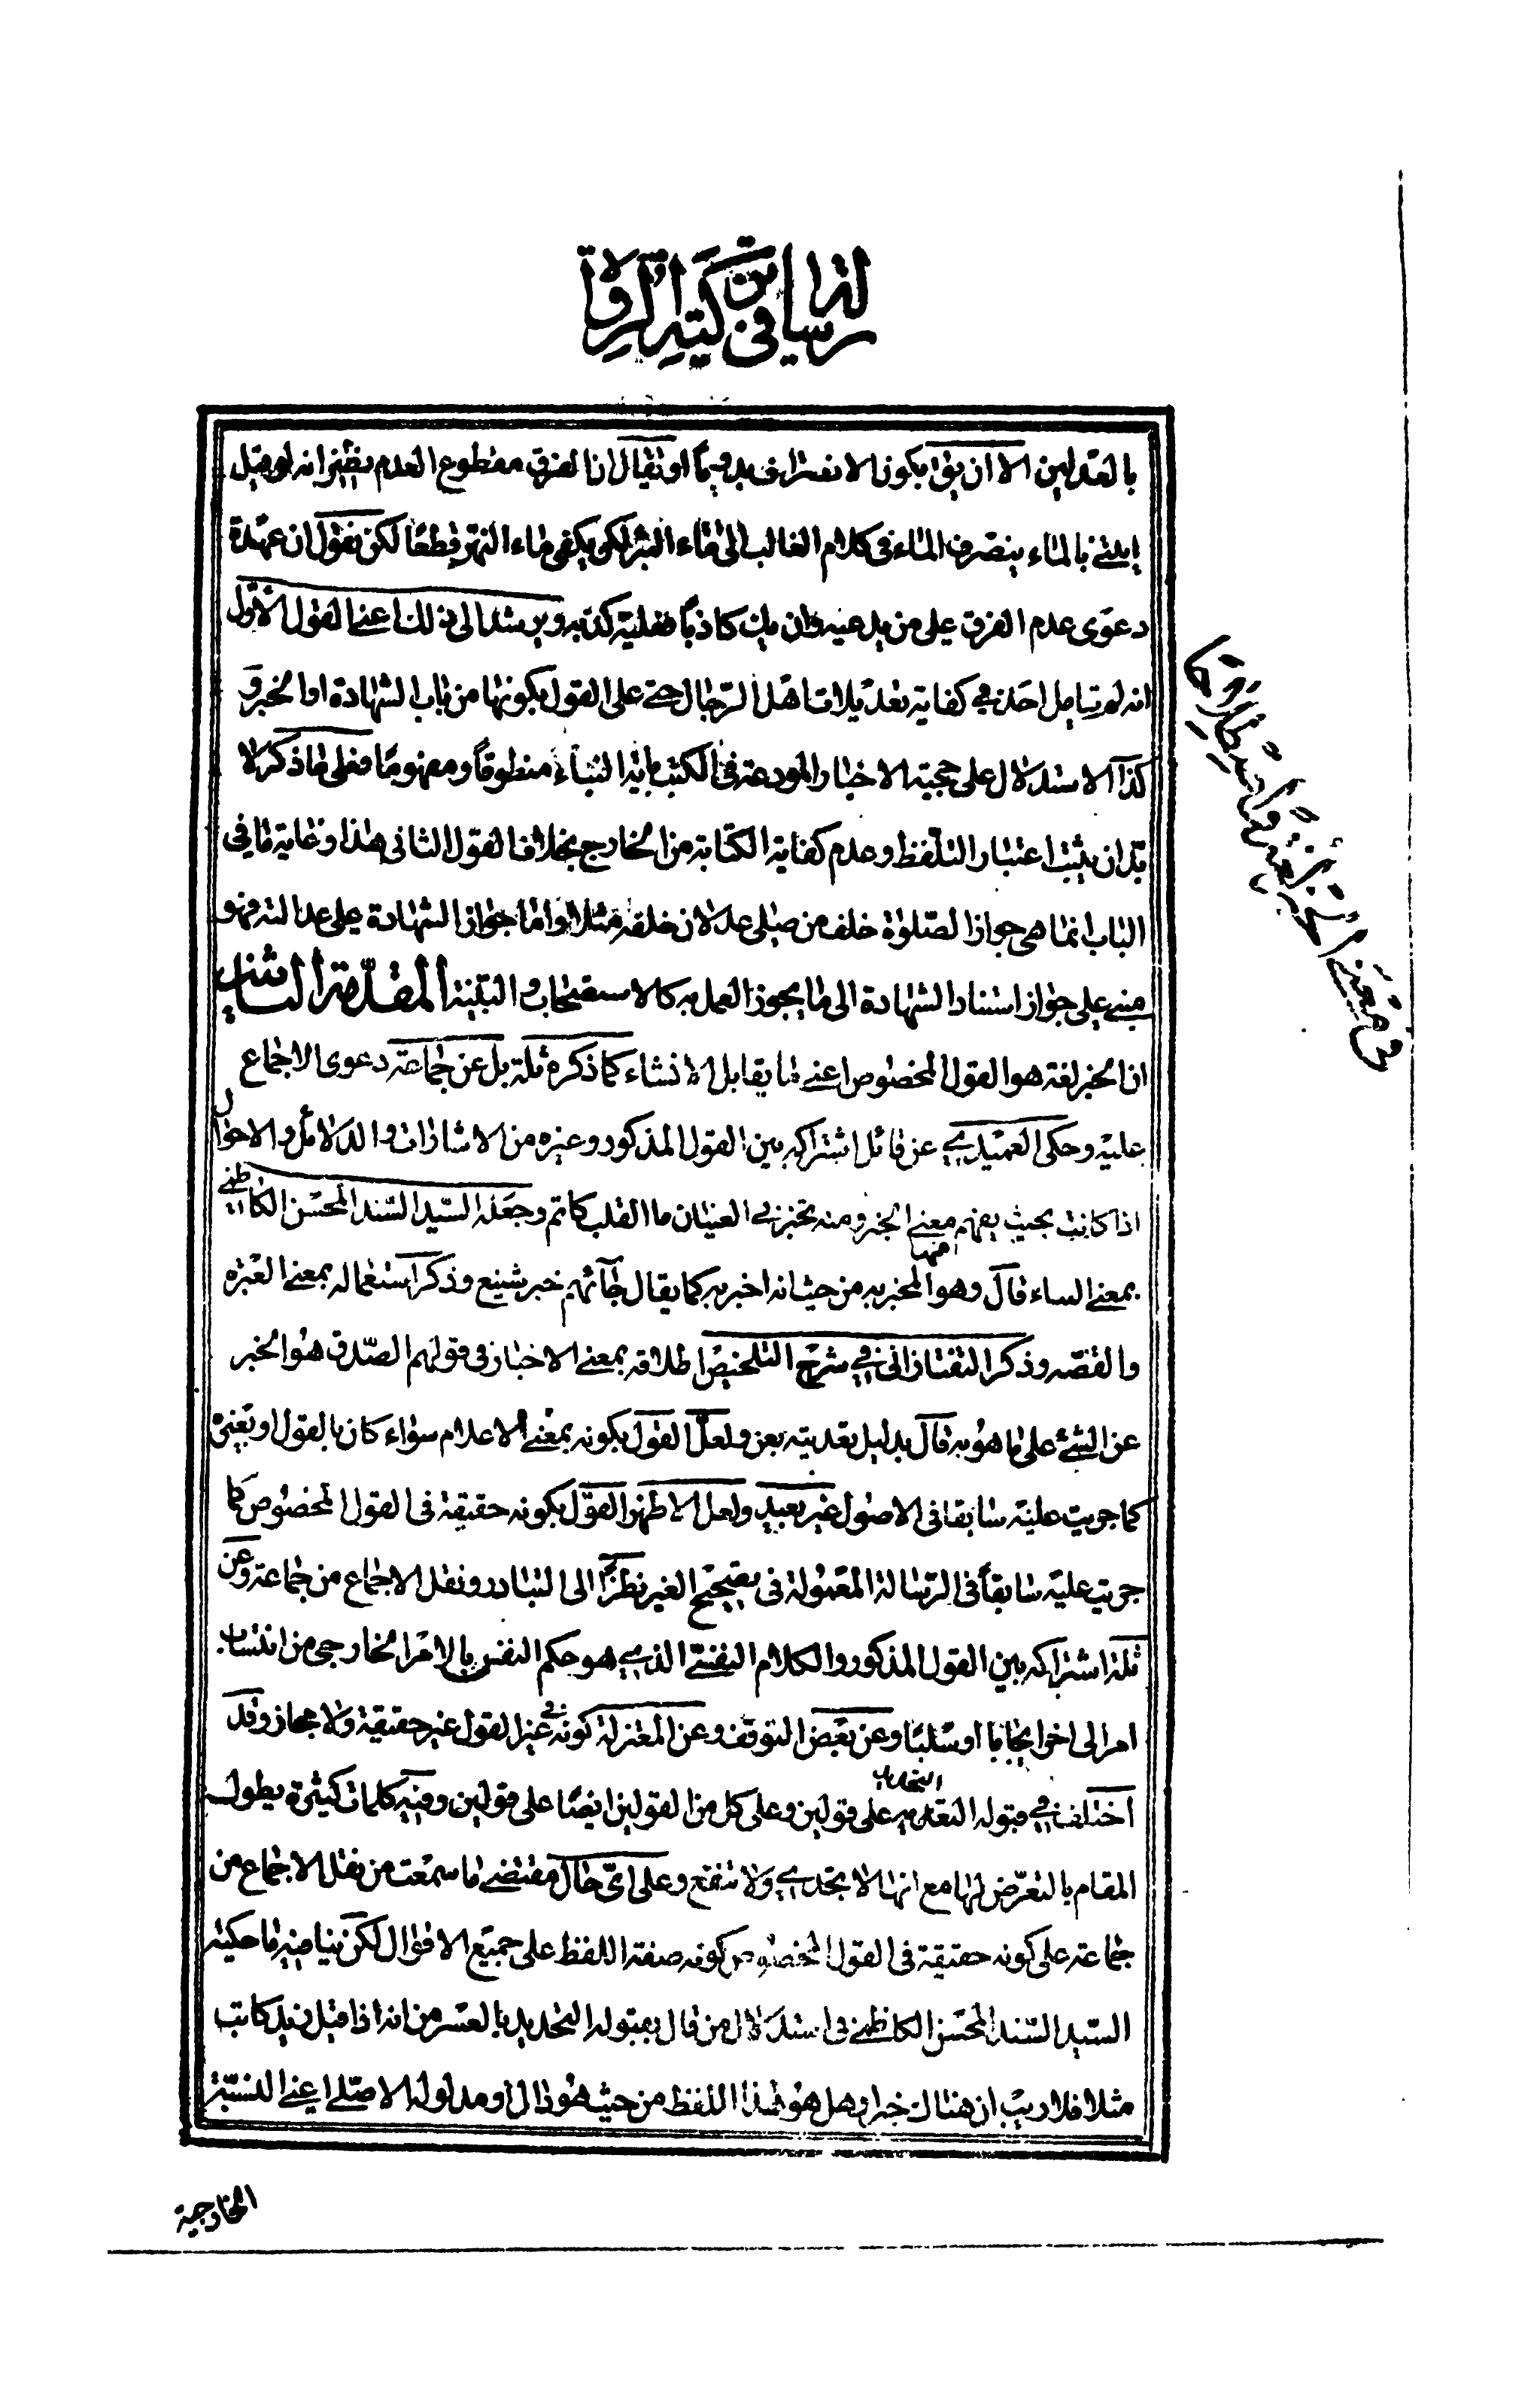 رسالة في تزكية الرواة
بالعدلين الا ان يق بكون الانصراف بدويا او يقال ان الفرق مقطوع العدم نظير انه لو قيل
ايتني بالماء ينصرف الماء في كلام الغالب الى ماء البئر لكن يكفى ماء النهر قطعا لكن نقول ان عهدة
دعوى عدم الفرق على من يدعيه وان يك كاذبا فعليه كذبه ويرشد الى ذلك اعني القول الاول
انه لم يتامل احد في كفاية تعديلات اهل الرجال حتى على القول بكونها من باب الشهادة او الخبر و
كذا الاستدلال على حجية الاخبار المودعة في الكتب باية النباء منطوقا ومفهوما فعلى ما ذكر لا
بد ان يثبت اعتبار التلفظ وعدم كفاية الكتابة من الخارج بخلاف القول الثاني هذا وغاية ما في
الباب انما هى جواز الصلوة خلف من صلى عدلان خلفه مثلا واما جواز الشهادة على عدالته فهو
مبنى على جواز استناد الشهادة الى ما يجوز العمل به كالاستصحاب والبينة المقدمة الثانية
ان الخبر لغة هو القول المخصوص اعنى ما يقابل الانشاء كما ذكره ثلة بل عن جماعة دعوى الاجماع
عليه وحكى العميدي عن قائل اشتراكه بين القول المذكور وغيره من الاشارات والدلائل والاحوال
اذا كانت بحيث يفهم منها معنى الخبر ومنه تخبرني العينان ما القلب كاتم وجعله السيد السند المحسن الكاظمي
بمعنى النباء قال وهو المخبر به من حيث انه اخبر به كما يقال جآئهم خبر شنيع وذكر استعماله بمعنى العبرة
والقصه وذكر التفتازانى في شرح التلخيص اطلاقه بمعنى الاخبار في قولهم الصدق هو الخبر
عن الشئ على ما هو به قال بدليل تعديته بعن ولعل القول بكونه بمعنى الاعلام سواء كان بالقول او بغيره
كما جريت عليه سابقا في الاصول غير بعيد ولعل الاظهر القول بكونه حقيقة في القول المخصوص كما
جريت عليه سابقا في الرسالة المعمولة في تصحيح الغير نظرا الى التبادر ونقل الاجماع من جماعة وعن
ثلة اشتراكه بين القول المذكور والكلام النفسي الذي هو حكم النفس بالامر الخارجى من انتساب
امر الى اخر ايجابا او سلبا وعن بعض التوقف وعن المعتزلة كونه في غير القول غير حقيقة ولا مجاز وقد
اختلف في قبوله التحديد على قولين وعلى كل من القولين ايضا على قولين وفيه كلمات كثيرة يطول
المقام بالتعرض لها مع انها لا تجدي ولا تنفع وعلى اى حال مقتضى ما سمعت من نقل الاجماع من
جماعة على كونه حقيقة في القول المخصوص كونه صفة اللفظ على جميع الاقوال لكن ينافيه ما حكيه
السيد السند المحسن الكاظمي في استدلال من قال بقبوله التحديد بالعسر من انه اذا قيل زيد كاتب
مثلا فلا ريب ان هناك خبرا وهل هو هذا اللفظ من حيث هو دال او مدلوله الاصلى اعنى النسبة
الخارجية
في معنى الخبر لغة